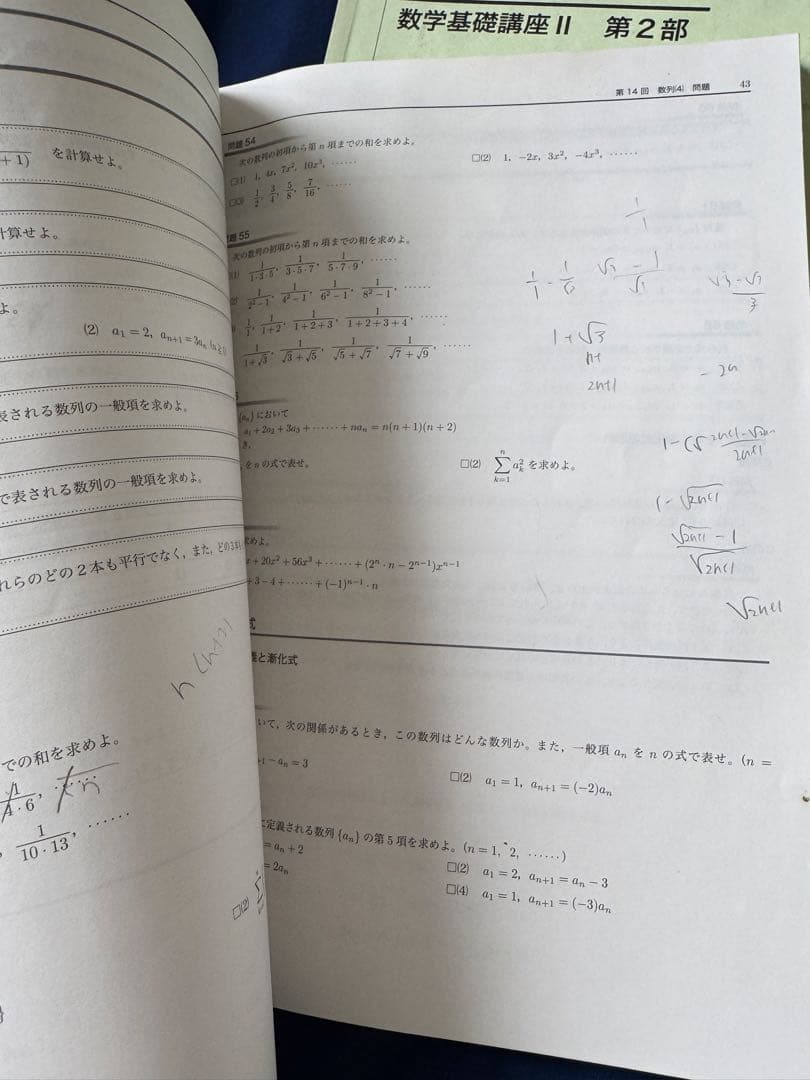 数学基礎講座Ⅱ 第2部
+1) を計算せよ。
計算せよ。
よ。
(2) a₁ = 2, aₙ₊₁ = 3aₙ
表される数列の一般項を求めよ。
で表される数列の一般項を求めよ。
れらのどの2本も平行でなく，また，どの3本も
n(n+2)
での和を求めよ。
1/(4・6), ……
1/(10・13), ……
□(2)
第14回 数列(4) 問題 43
問題54
次の数列の初項から第 n 項までの和を求めよ。
□(1) 1, 4x, 7x², 10x³, ……
□(2) 1, −2x, 3x², −4x³, ……
□(3) 1/2, 3/4, 5/8, 7/16, ……
題55
次の数列の初項から第 n 項までの和を求めよ。
(1) 1/(1・3・5), 1/(3・5・7), 1/(5・7・9), ……
1/(2²−1), 1/(4²−1), 1/(6²−1), 1/(8²−1), ……
1/1, 1/(1+2), 1/(1+2+3), 1/(1+2+3+4), ……
1/(1+√3), 1/(√3+√5), 1/(√5+√7), 1/(√7+√9), ……
{aₙ}において
a₁+2a₂+3a₃+……+naₙ = n(n+1)(n+2)
を n の式で表せ。
□(2) Σₖ₌₁ⁿ aₖ² を求めよ。
求めよ。
x+20x²+56x³+……+(2ⁿ・n−2ⁿ⁻¹)xⁿ⁻¹
+3−4+……+(−1)ⁿ⁻¹・n
1/1
1/1 − 1/6
1+√3
n+1
2n+1
− 2n
1−√2n+1
(√2n+1 − 1)/√2n+1
√2n+1
式
と漸化式
いて，次の関係があるとき，この数列はどんな数列か。また，一般項 aₙ を n の式で表せ。(n =
₊₁ − aₙ = 3
□(2) a₁ = 1, aₙ₊₁ = (−2)aₙ
に定義される数列{aₙ}の第5項を求めよ。(n = 1, 2, ……)
= aₙ + 2
□(2) a₁ = 2, aₙ₊₁ = aₙ − 3
= 2aₙ
□(4) a₁ = 1, aₙ₊₁ = (−3)aₙ